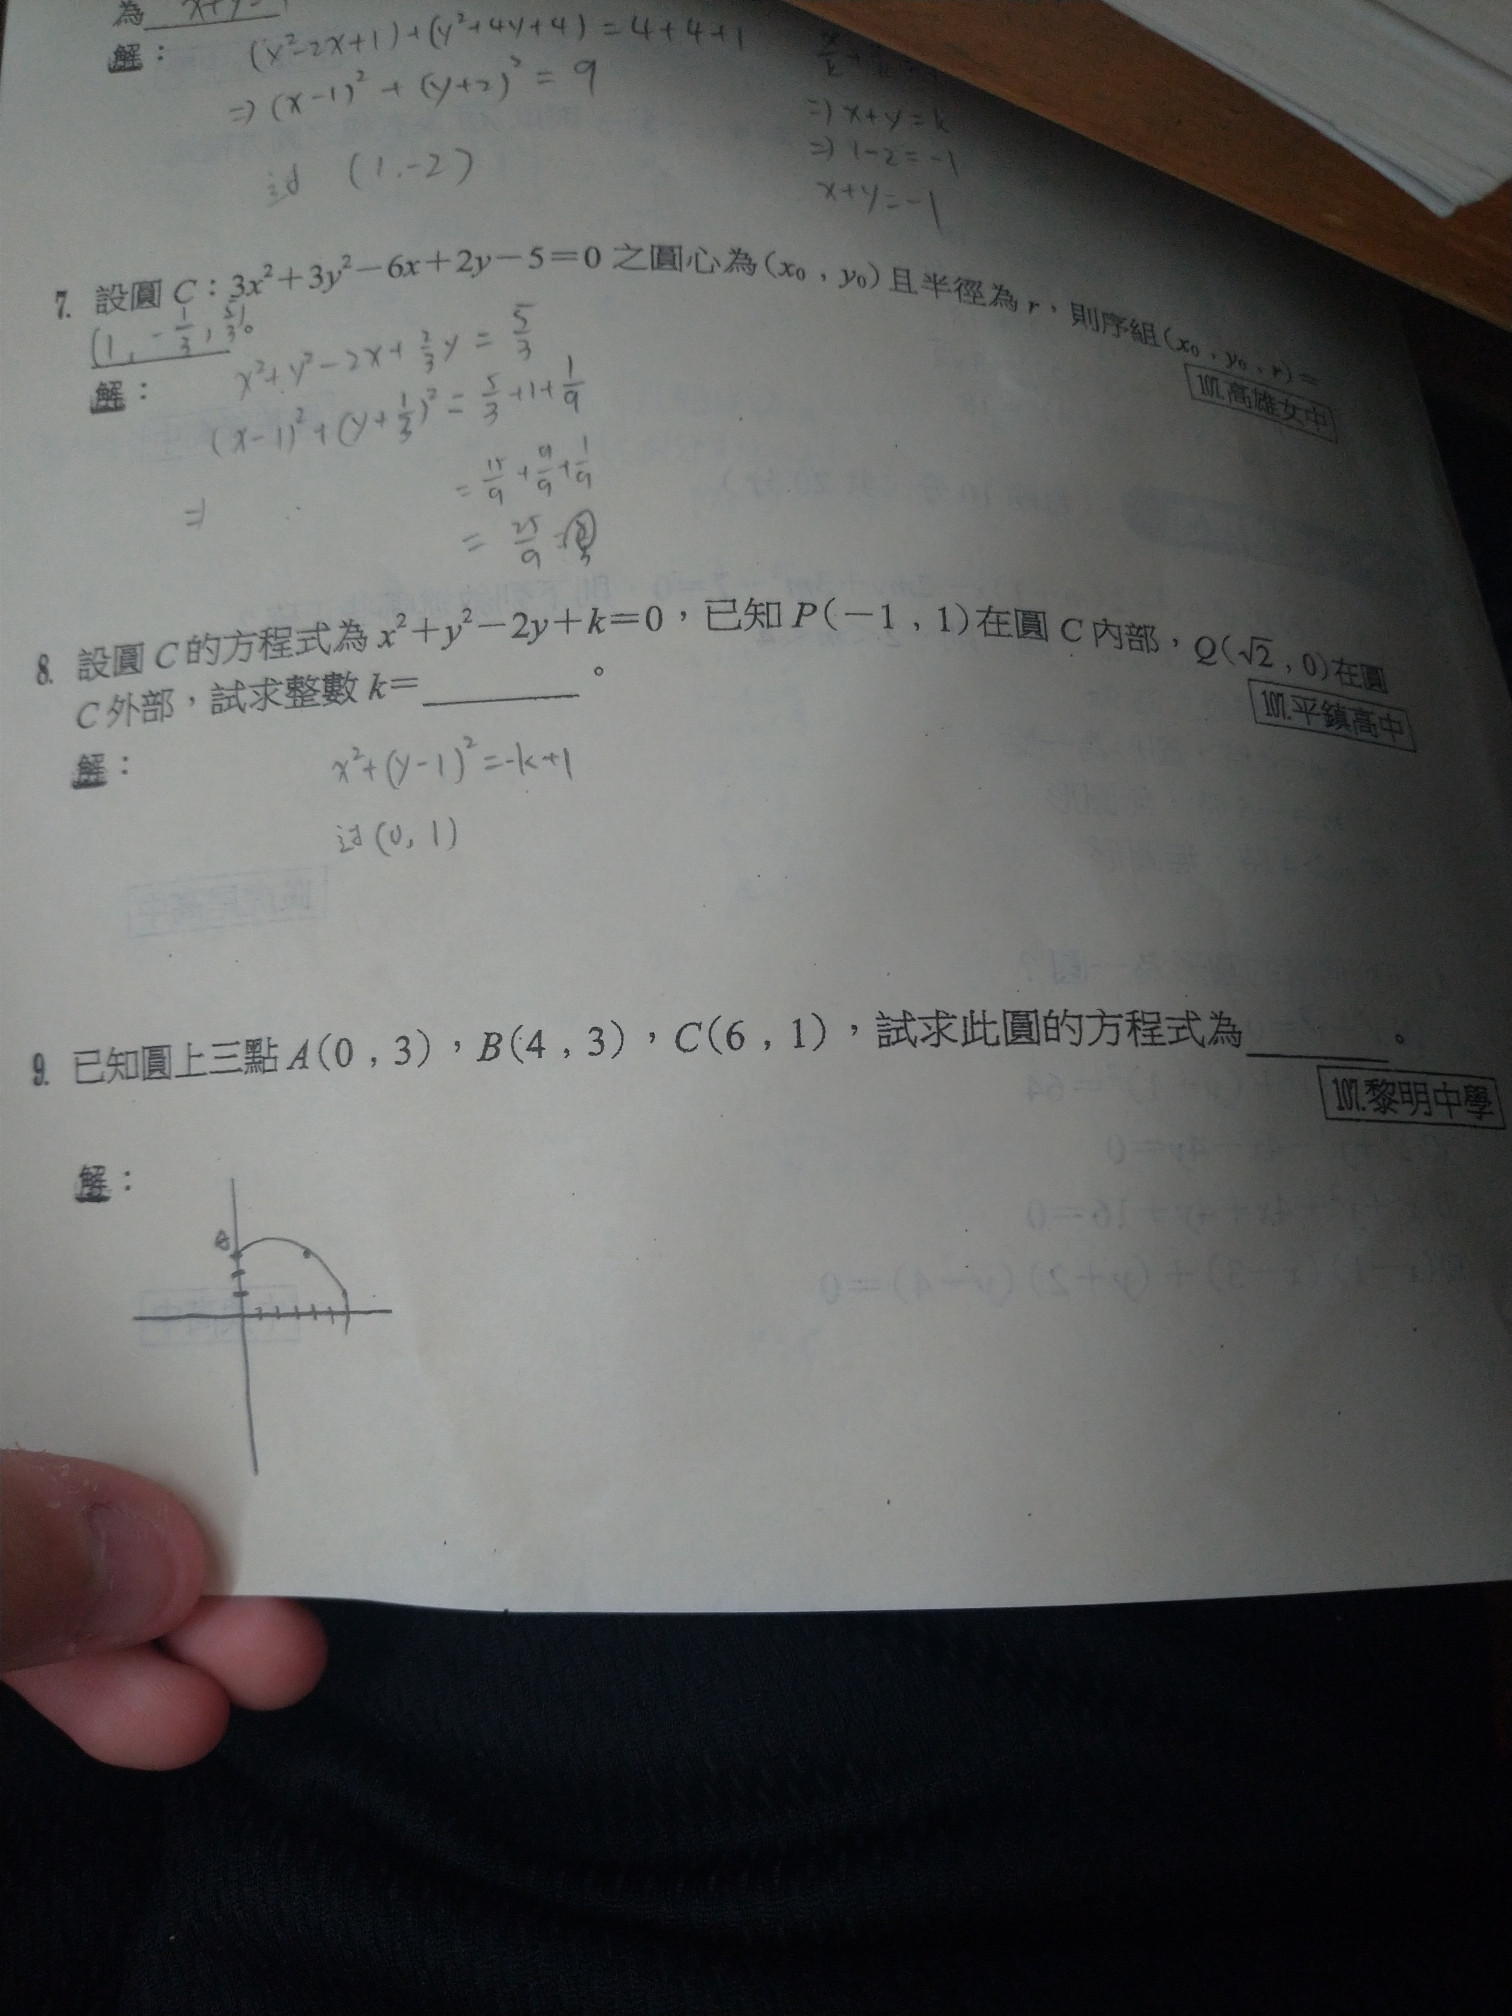 為 x+y=-1
解：
(x²-2x+1)+(y²+4y+4)=4+4+1
⇒(x-1)²+(y+2)²=9
过 (1.-2)
⇒x+y=k
⇒1-2=-1
x+y=-1
7. 設圓 C：3x²+3y²-6x+2y-5=0 之圓心為(x₀，y₀)且半徑為 r，則序組(x₀，y₀，r)=
(1, -1/3, 5/3)。
107.高雄女中
解：
x²+y²-2x+2/3y=5/3
(x-1)²+(y+1/3)²=5/3+1+1/9
=15/9+9/9+1/9
⇒
=25/9
8. 設圓 C 的方程式為 x²+y²-2y+k=0，已知 P(-1，1)在圓 C 內部，Q(√2，0)在圓
C 外部，試求整數 k=______。
107.平鎮高中
解：
x²+(y-1)²=-k+1
过(0, 1)
9. 已知圓上三點 A(0，3)，B(4，3)，C(6，1)，試求此圓的方程式為______。
107.黎明中學
解：